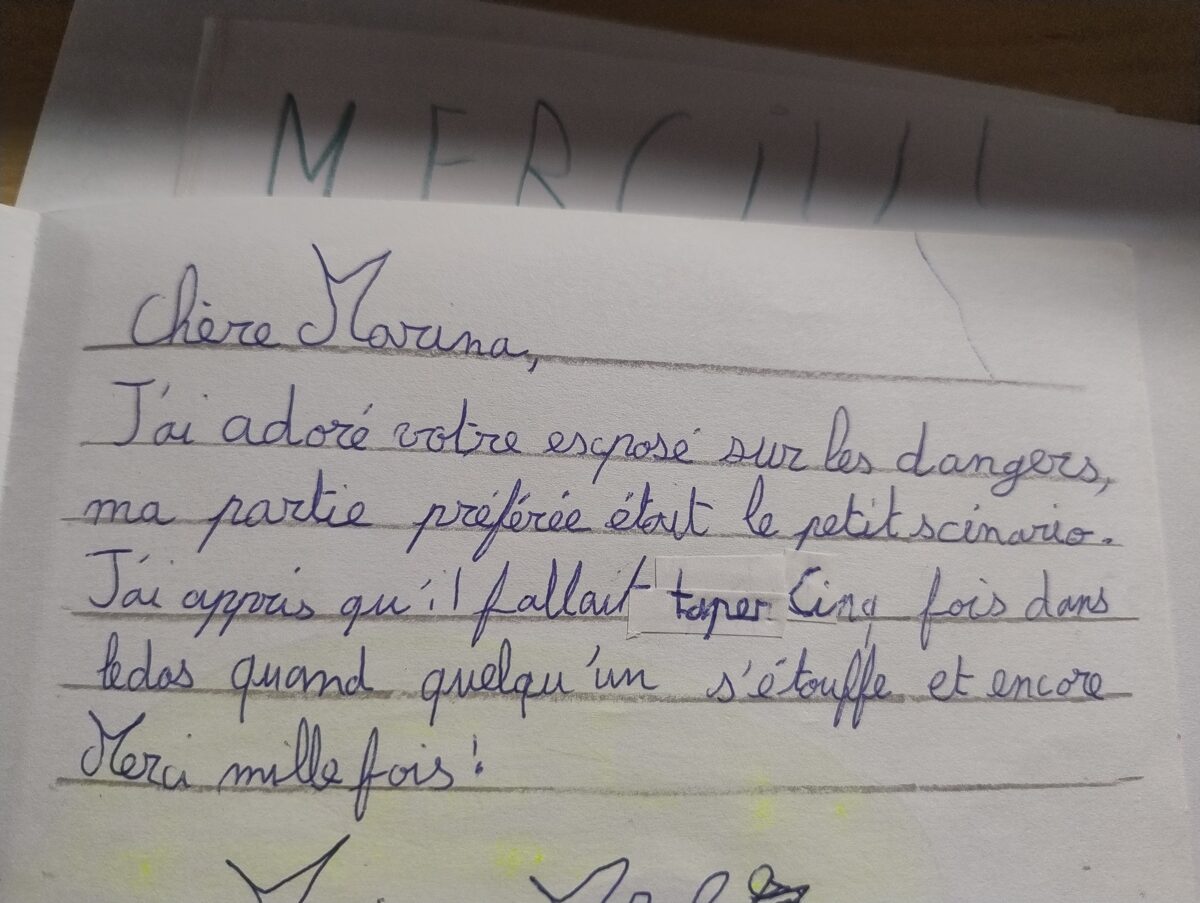 MERCI!!!
Chère Marina,
J'ai adoré votre esposé sur les dangers,
ma partie préférée était le petit scinario.
J'ai appris qu'il fallait taper Cinq fois dans
le dos quand quelqu'un s'étouffe et encore
Merci mille fois!